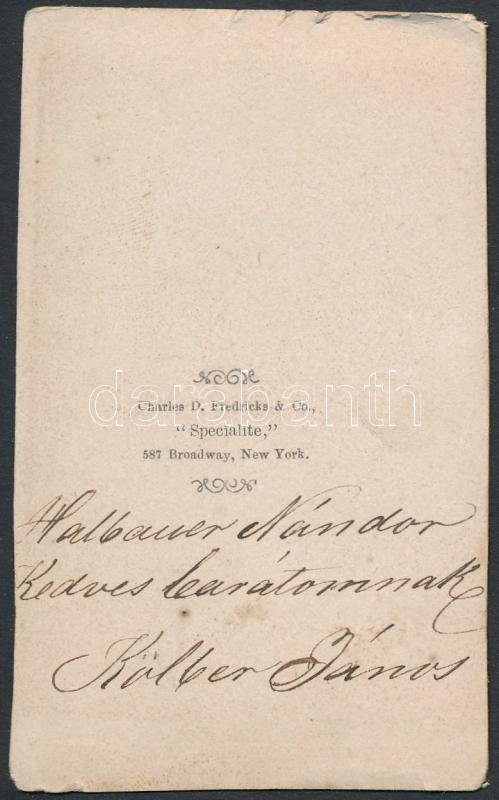 Charles D. Fredricks & Co.,
"Specialite,"
587 Broadway, New York.
darabanth
Halbauer Nándor
Kedves barátomnak
Kölber János